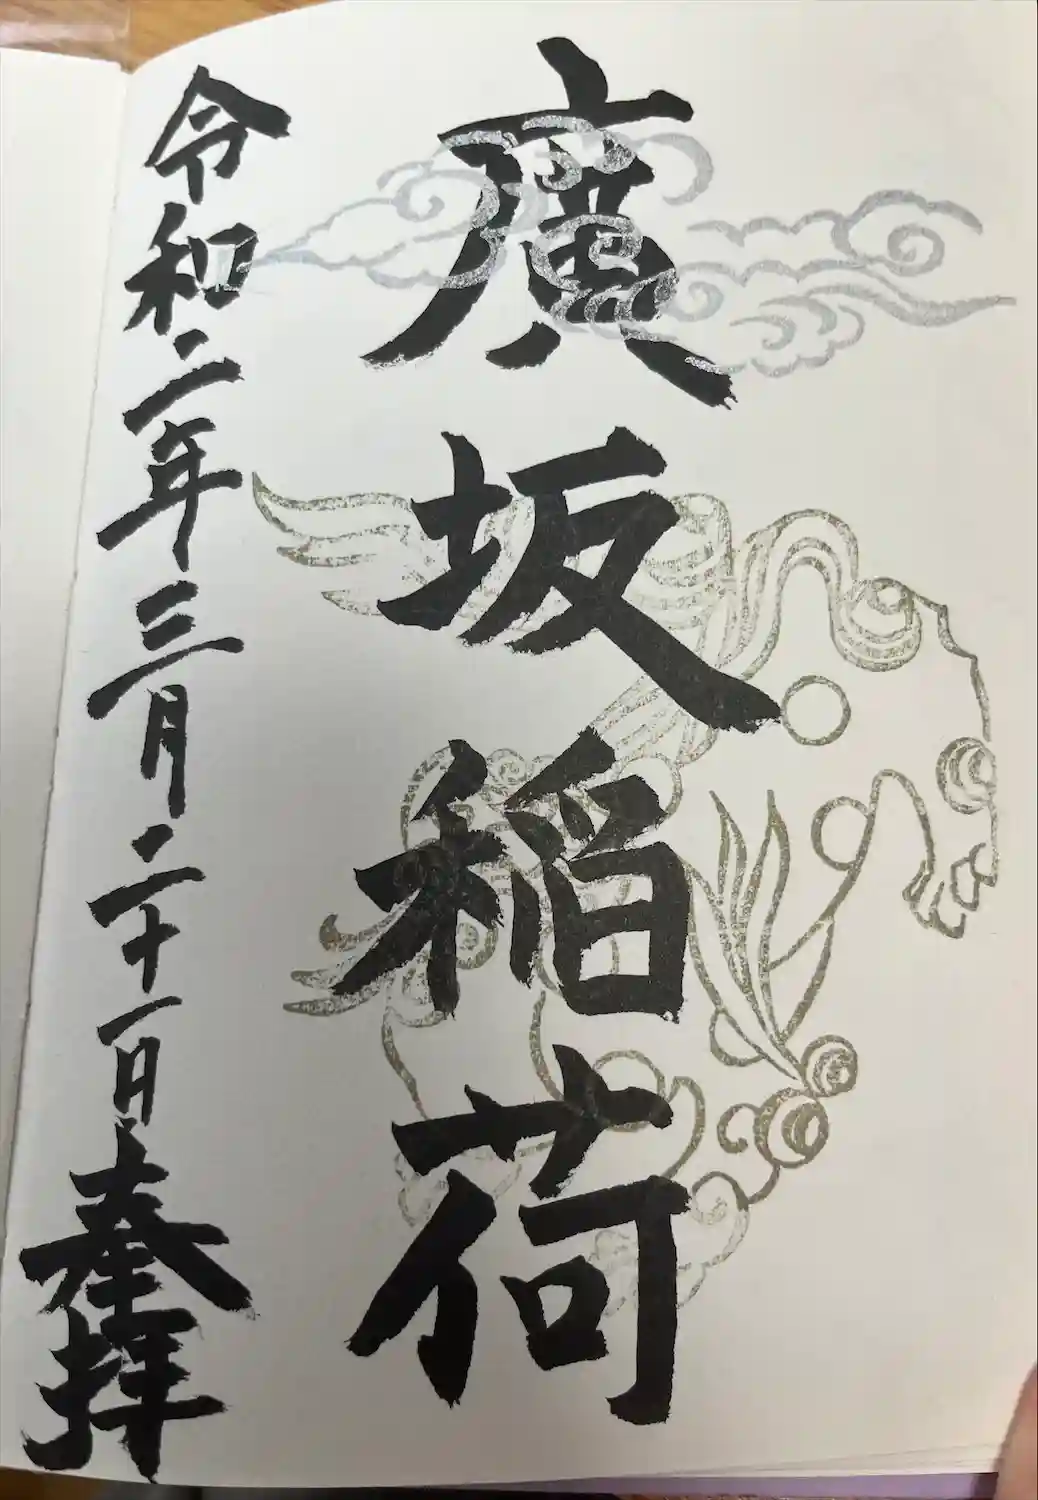 廣坂稲荷
令和二年三月二十一日奉拝